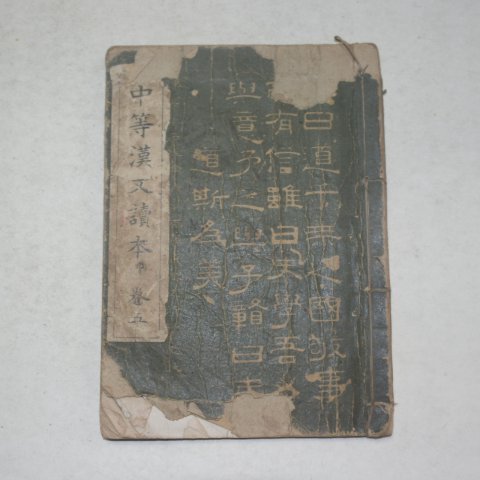 曰道千乘之國敬事
有信雖曰未學吾
與意予之與子贛曰夫
道斯為美
中等漢文讀本 卷五